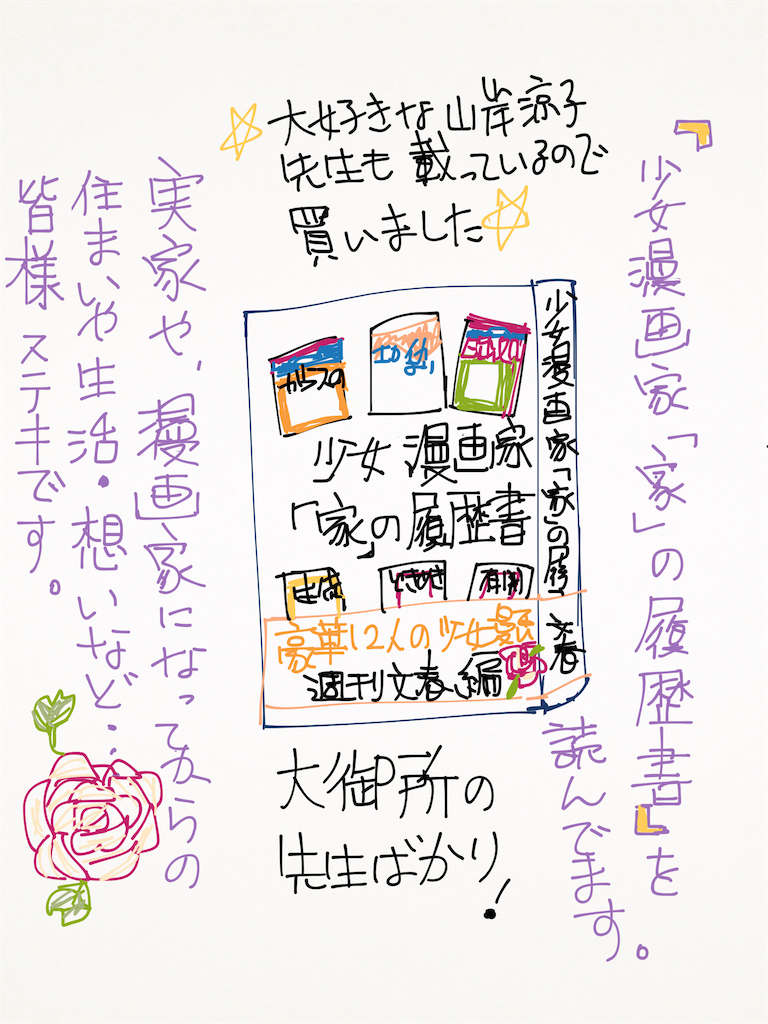 『少女漫画家「家」の履歴書』を
読んでます。
大好きな山岸涼子
先生も載っているので
買いました
少女漫画家「家」の履
文春
カラスの
少女漫画家
「家」の履歴書
ときめき
豪華12人の少女
週刊文春編
大御所の
先生ばかり！
実家や、漫画家になってからの
住まいや生活・想いなど‥
皆様ステキです。